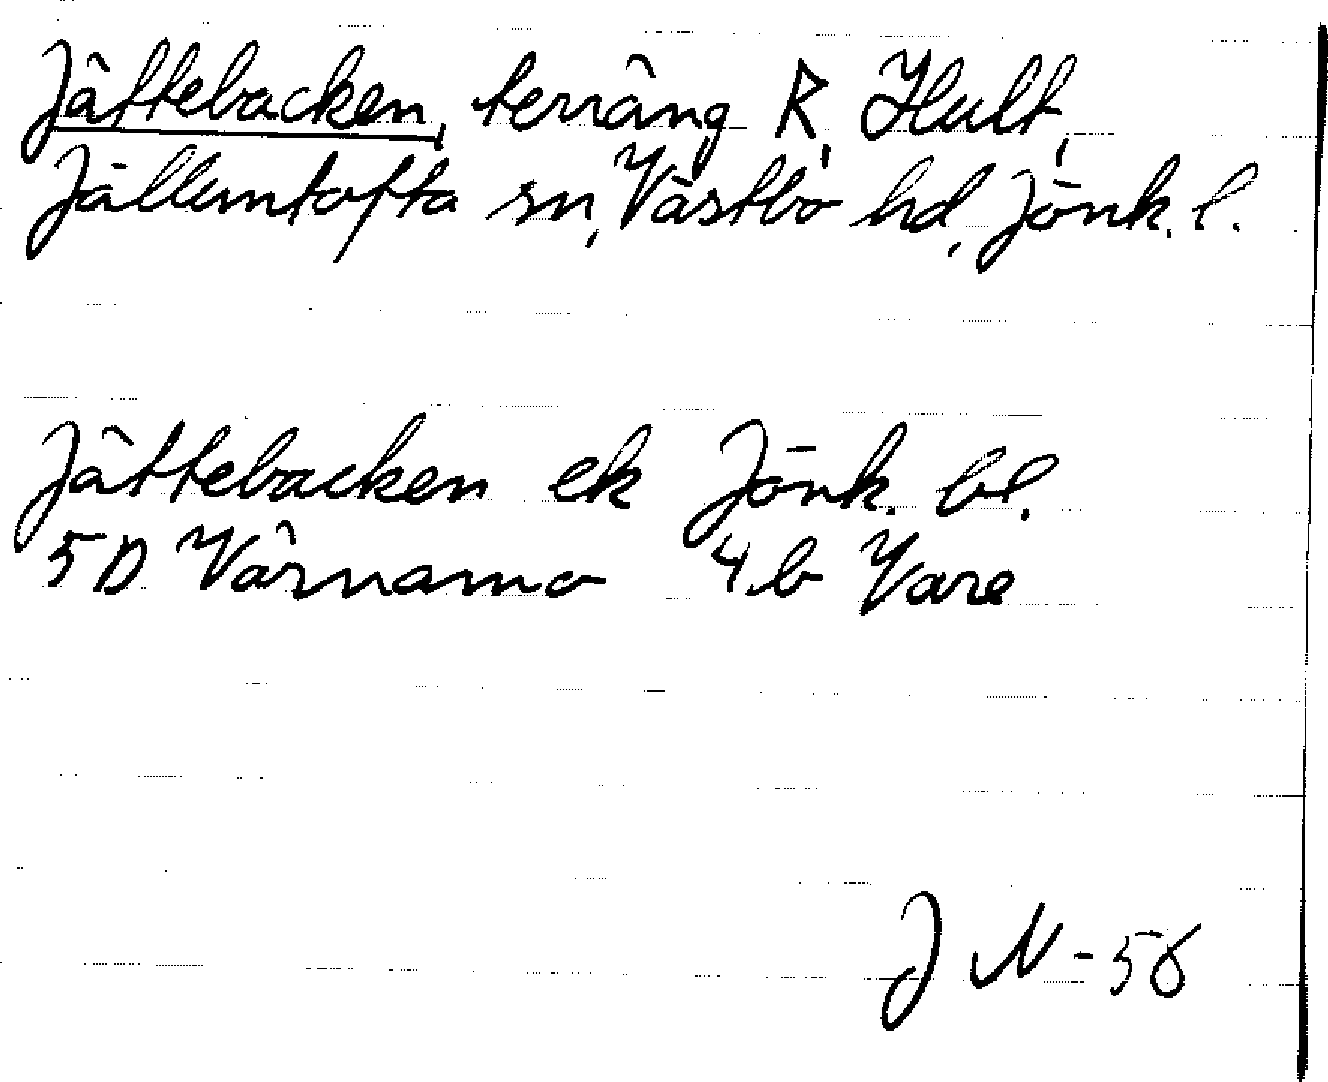 Jättebacken, terräng, R, Hult,
Jälluntofta sn, Västbo hd, Jönk. l.
Jättebacken ek Jönk. bl.
5 D Värnamo 4 b Vare
J N - 58